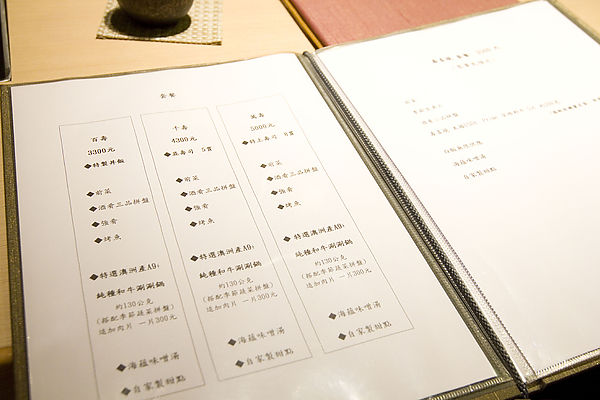 套餐
百壽
3300元
◆特製丼飯
◆前菜
◆酒肴三品拼盤
◆強肴
◆烤魚
◆特選澳洲產A9+
純種和牛涮涮鍋
約130公克
(搭配季節蔬菜拼盤)
追加肉片 一片300元
◆海蘊味噌湯
◆自家製甜點
千壽
4300元
◆並壽司 5貫
◆前菜
◆酒肴三品拼盤
◆強肴
◆烤魚
◆特選澳洲產A9+
純種和牛涮涮鍋
約130公克
(搭配季節蔬菜拼盤)
追加肉片 一片300元
◆海蘊味噌湯
◆自家製甜點
萬壽
5000元
◆特上壽司 8貫
◆前菜
◆酒肴三品拼盤
◆強肴
◆烤魚
◆特選澳洲產A9+
純種和牛涮涮鍋
約130公克
(搭配季節蔬菜拼盤)
追加肉片 一片300元
◆海蘊味噌湯
◆自家製甜點
海蘊味噌湯
自家製甜點